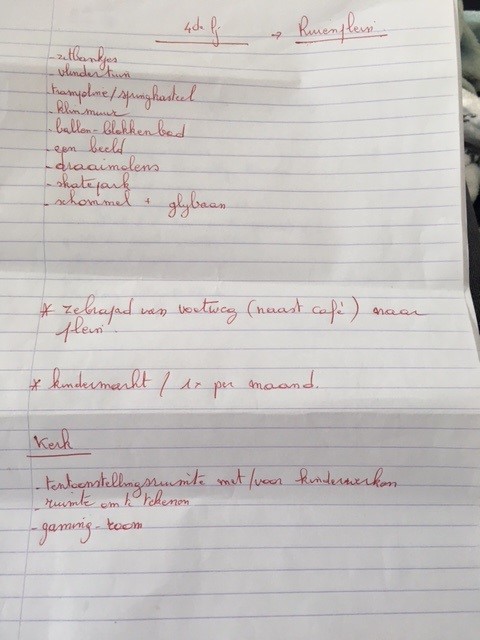 4de lj → Ruienplein
- zitbankjes
- vlindertuin
trampoline/springkasteel
- klimmuur
- ballen-blokkenbad
- een beeld
- draaimolens
- skatepark
- schommel + glijbaan
* zebrapad van voetweg (naast café) naar
plein.
* kindermarkt / 1x per maand.
Kerk
- tentoonstellingsruimte met/voor kinderwerken
- ruimte om te tekenen
- gaming-room